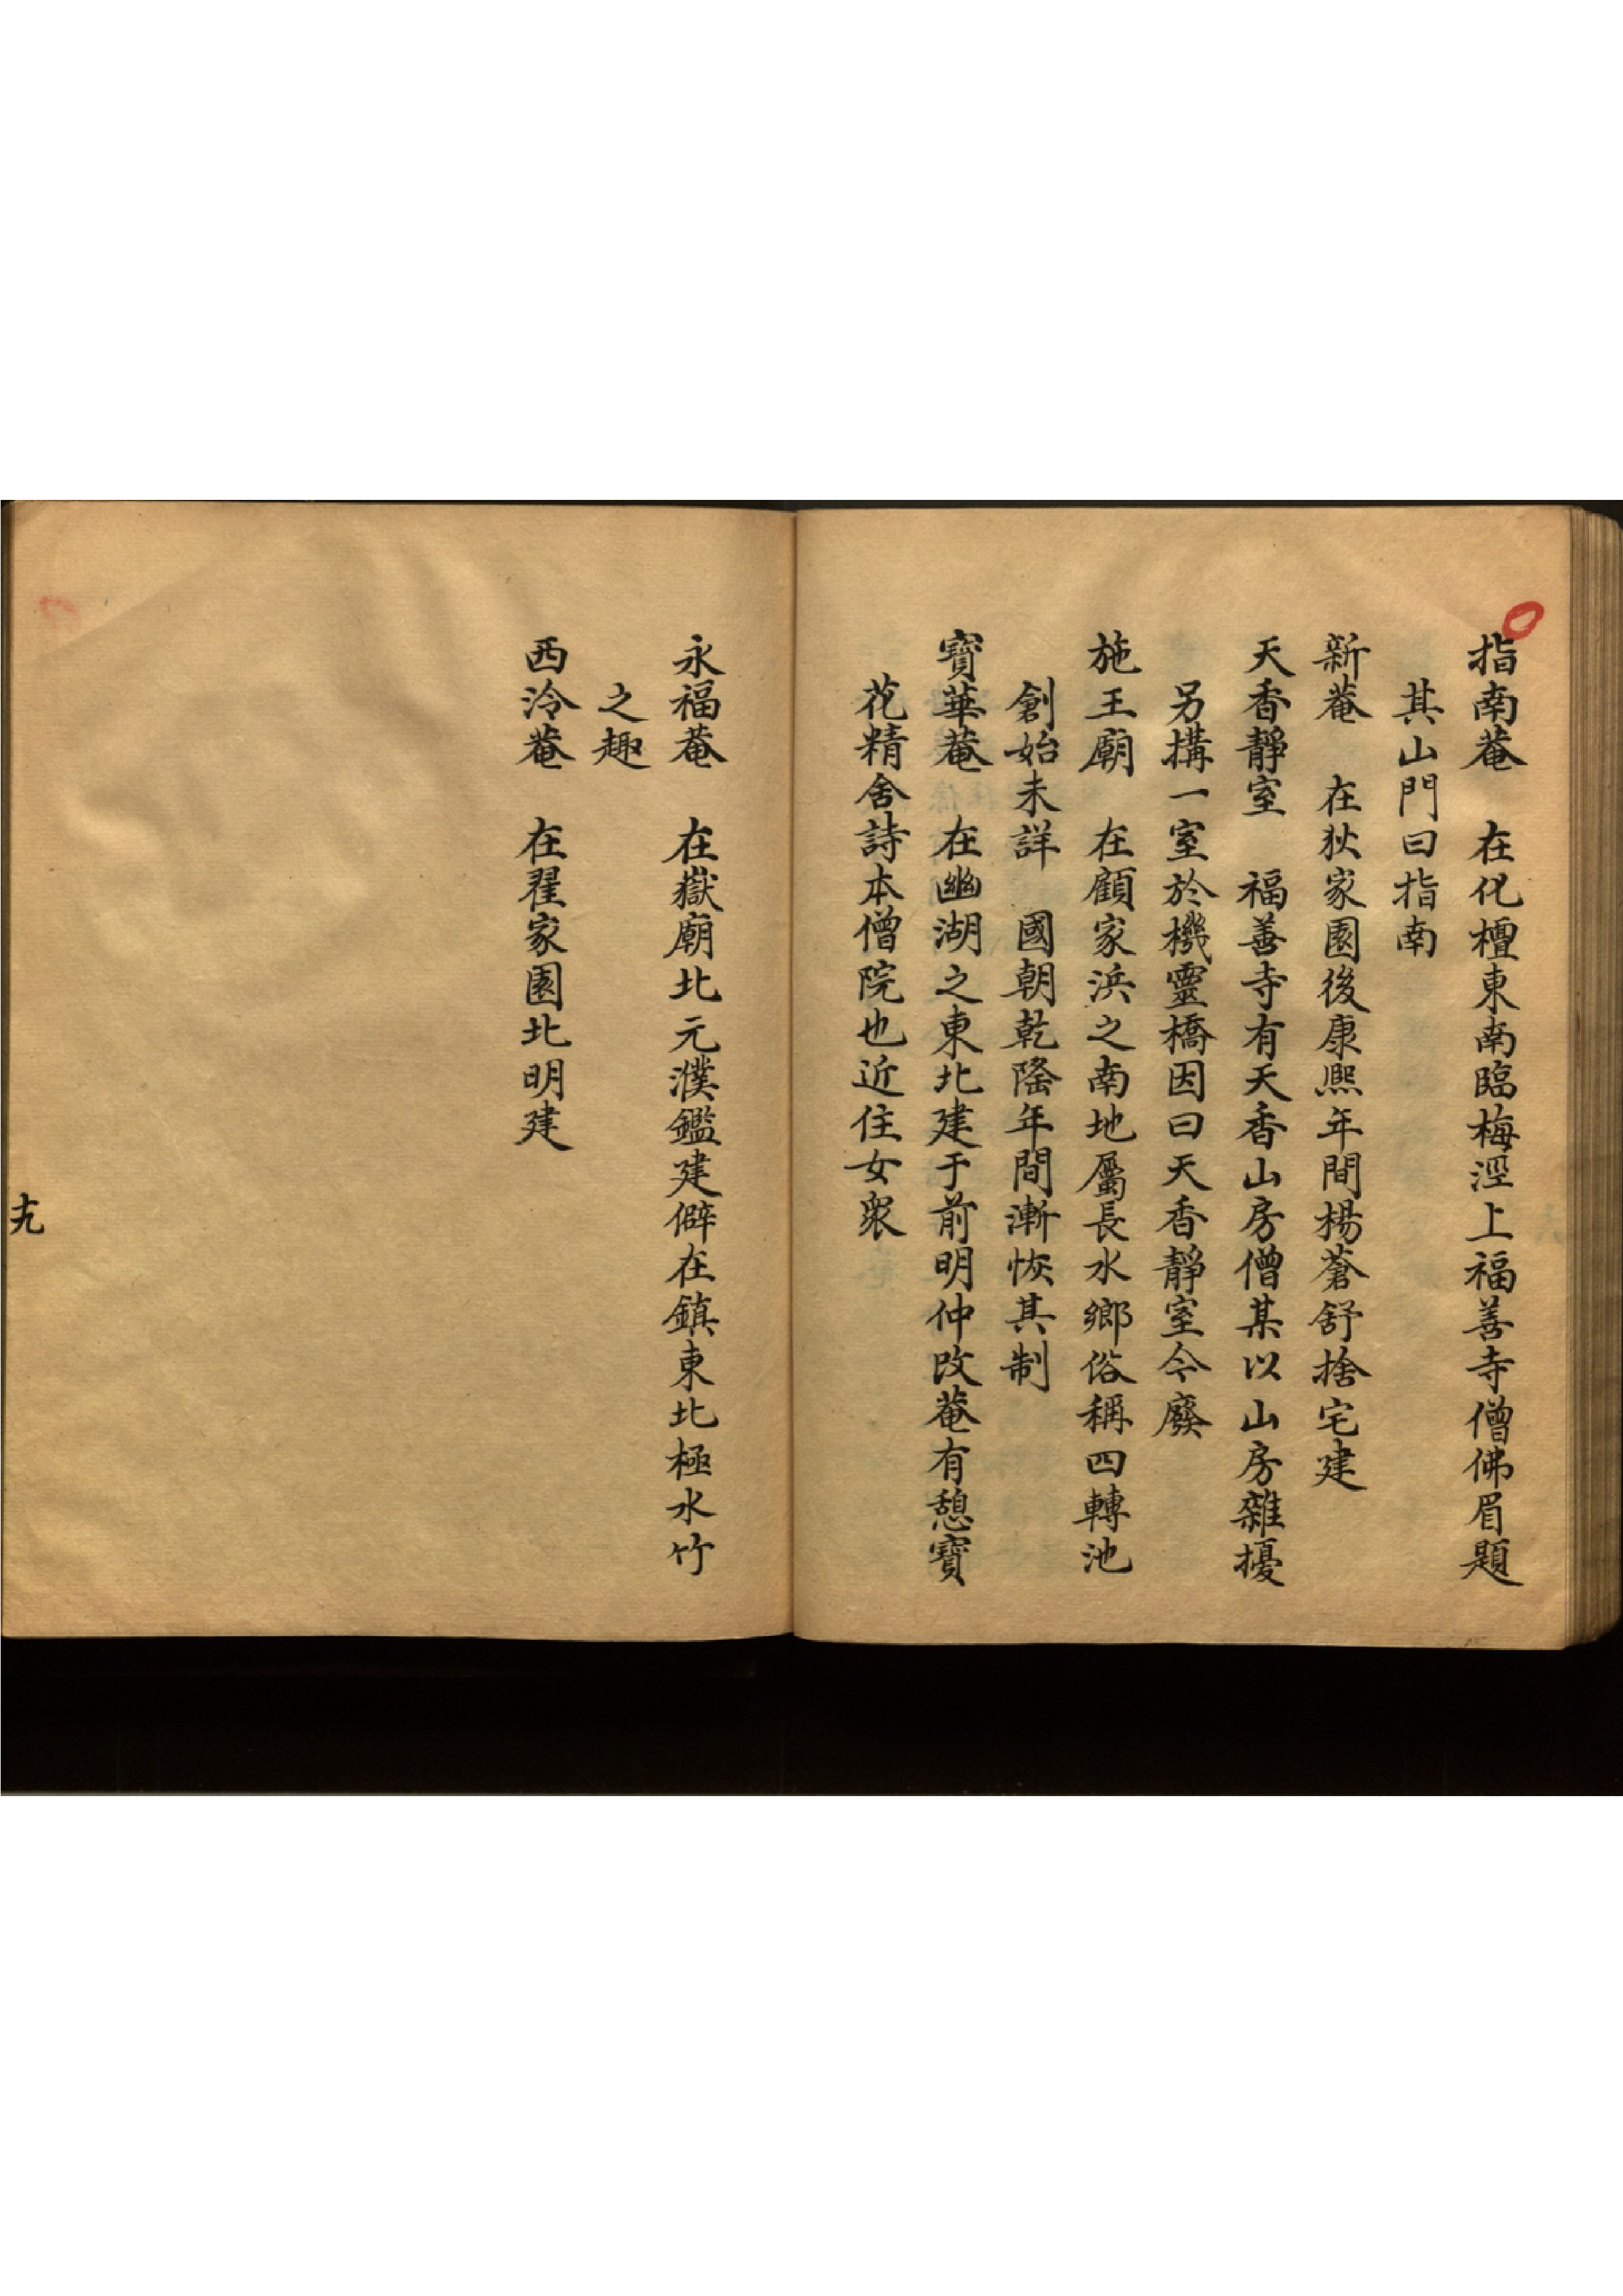 指南菴　在化檀東南臨梅涇上福善寺僧佛眉題
其山門曰指南
新菴　在狄家園後康熙年間楊蒼舒捨宅建
天香靜室　福善寺有天香山房僧某以山房雜擾
另搆一室於機靈橋因曰天香靜室今廢
施王廟　在顧家浜之南地屬長水鄉俗稱四轉池
創始未詳　國朝乾隆年間漸恢其制
寶華菴　在幽湖之東北建于前明仲改菴有憩寶
花精舍詩本僧院也近住女衆
永福菴　在嶽廟北元濮鑑建僻在鎮東北極水竹
之趣
西泠菴　在翟家園北明建
十九